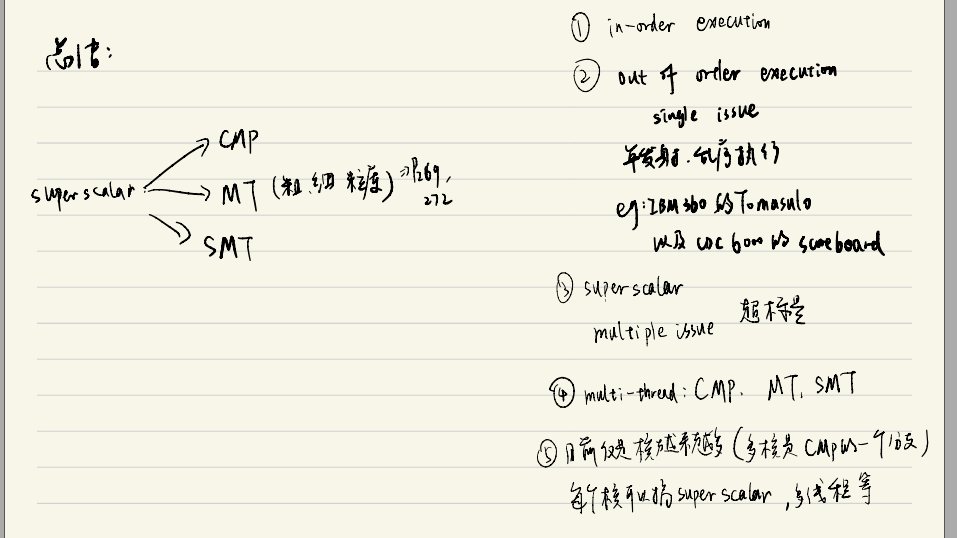 总结:
superscalar
CMP
MT (粗.细粒度) → P269,
272
SMT
① in-order execution
② out of order execution
single issue
单发射.乱序执行
eg: IBM360 的Tomasulo
以及 CDC 6000 的 scoreboard
③ superscalar
multiple issue 超标量
④ multi-thread: CMP. MT. SMT
⑤ 目前仅是核越来越多 (多核是CMP的一个分支)
每个核可以搞superscalar , 多线程等